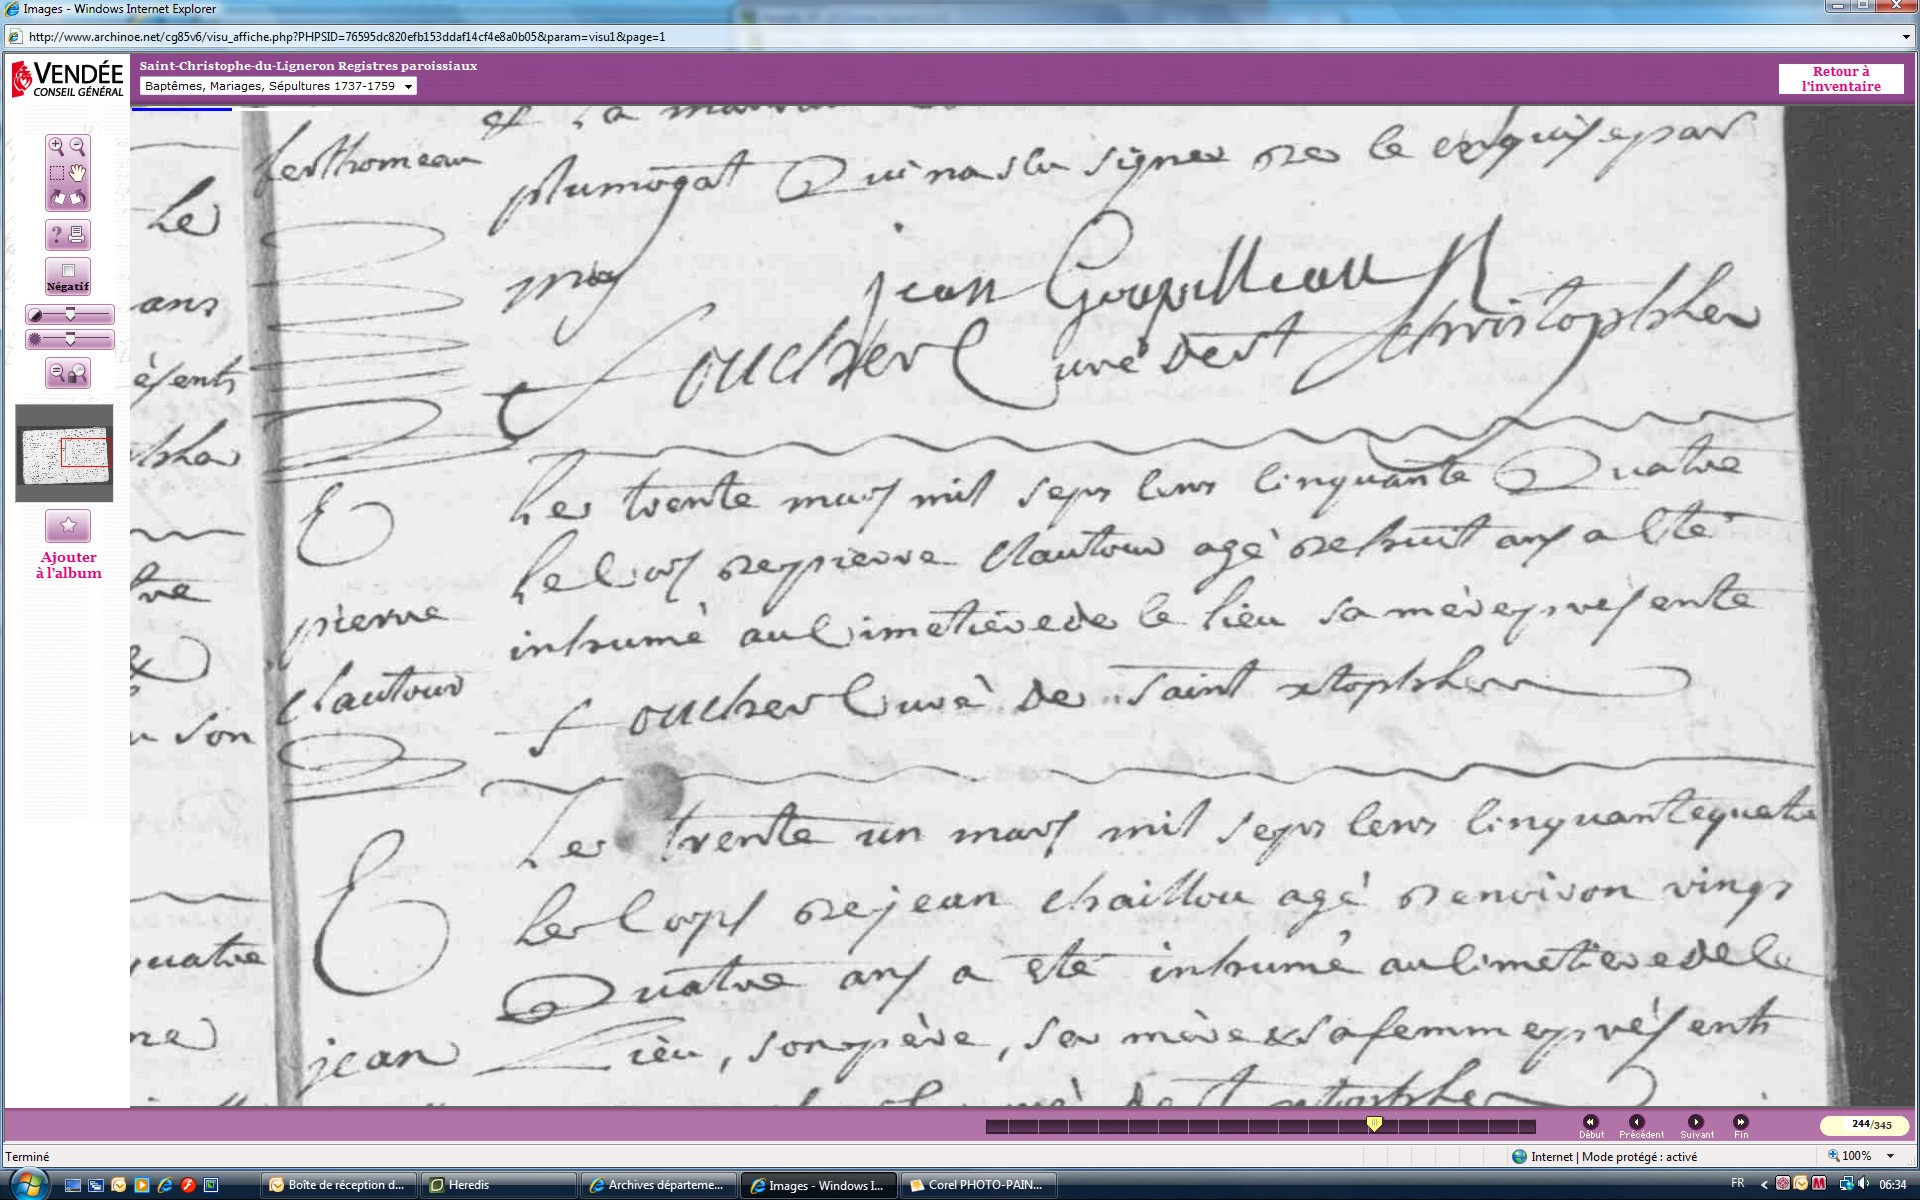 Images - Windows Internet Explorer
http://www.archinoe.net/cg85v6/visu_affiche.php?PHPSID=76595dc820efb153ddaf14cf4e8a0b05&param=visu1&page=1
VENDÉE
CONSEIL GÉNÉRAL
Saint-Christophe-du-Ligneron Registres paroissiaux
Baptêmes, Mariages, Sépultures 1737-1759
Retour à
l'inventaire
Négatif
Ajouter
à l'album
berthomeau
plumogat Qui na sçu signer de ce enquis par
moy
jean Goupilleau
foucher Curé de st christophe
Le trente mars mil sept cens cinquante Quatre
le Corps de pierre Clautour agé de huit ans a eté
inhumé au Cimetiere de ce lieu sa mère présente
foucher Curé de saint xtophe
pierre
Clautour
Le trente un mars mil sept cens cinquante quatre
le Corps de jean chaillou agé denviron vingt
Quatre ans a eté inhumé au cimetiere de ce
Lieu, son père, sa mère & sa femme présents
jean
Le
ans
ésents
quatre
son
244/345
Début
Précédent
Suivant
Fin
Terminé
Internet | Mode protégé : activé
100%
Boîte de réception d...
Heredis
Archives départeme...
Images - Windows I...
Corel PHOTO-PAIN...
FR
06:34